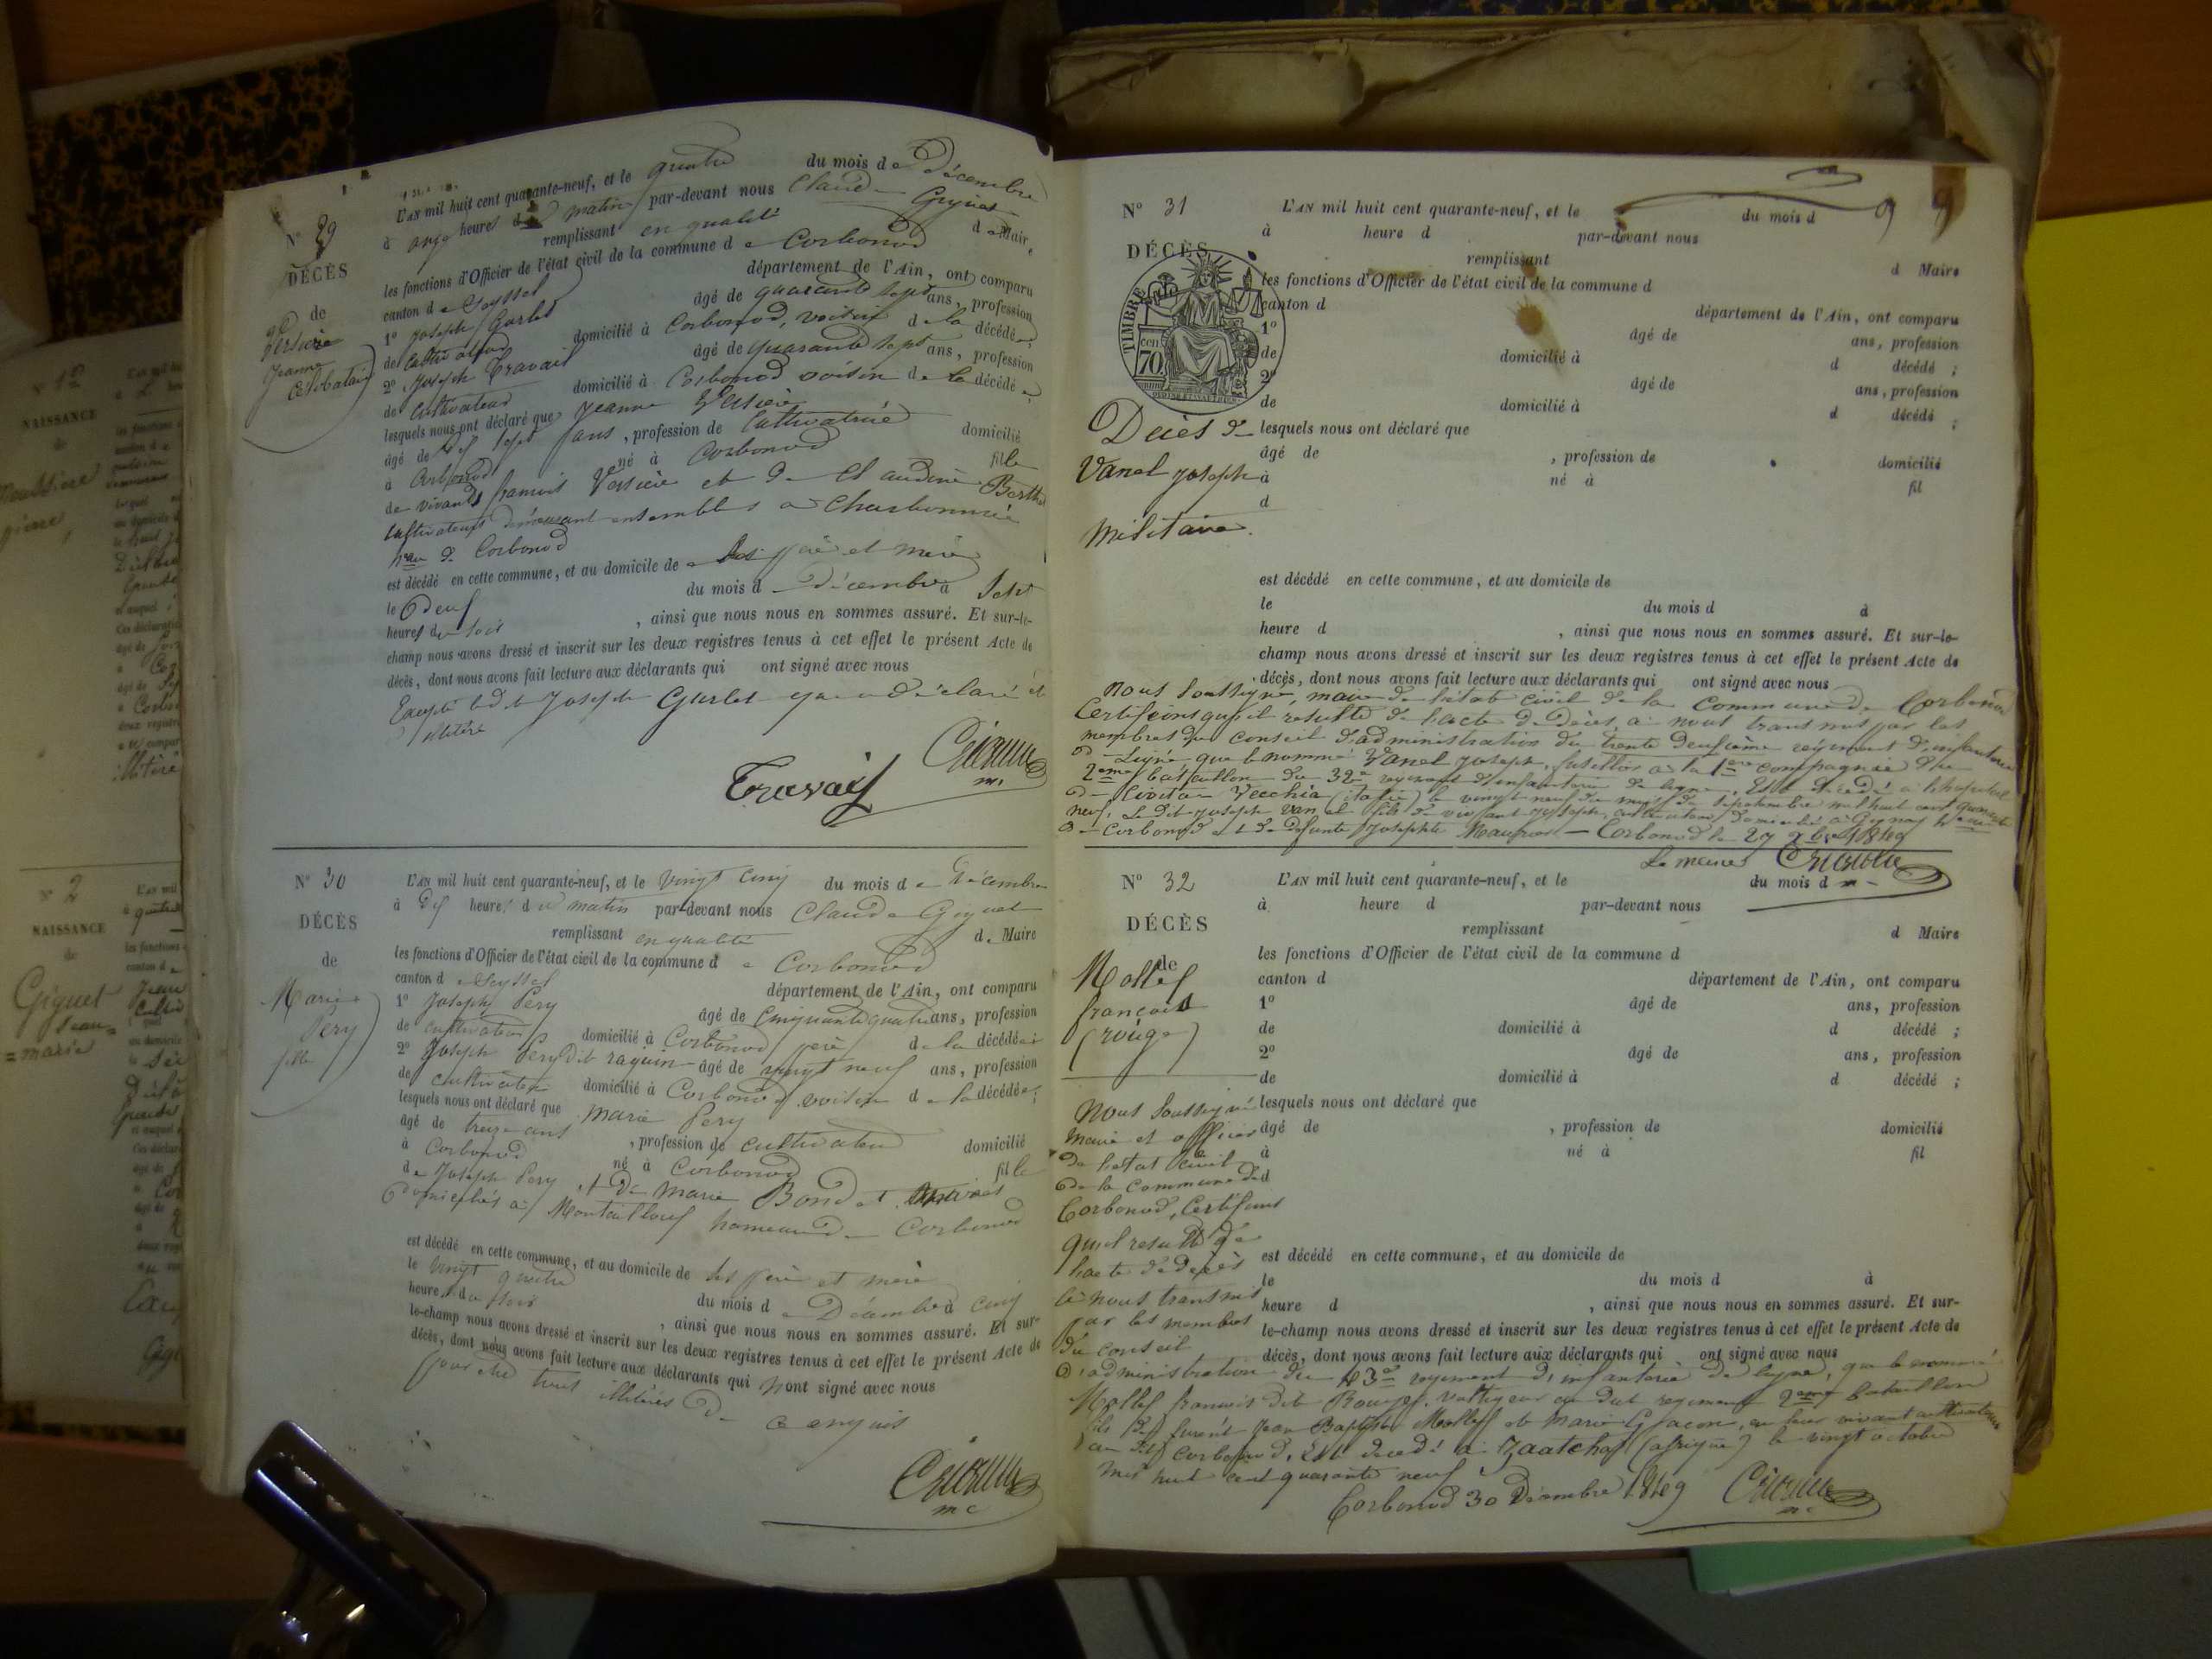 N° 29
DÉCÈS
de
Versière
Jeanne
Célobataire
L'AN mil huit cent quarante-neuf, et le quatre du mois de Décembre
à onze heures du matin par-devant nous Claude Giguet
remplissant en qualité de Maire
les fonctions d'Officier de l'état civil de la commune de Corbonod
canton de Seyssel département de l'Ain, ont comparu
1° Joseph Gurlet âgé de quarante sept ans, profession
de Cultivateur domicilié à Corbonod, voisin de la décédée;
2° Joseph Travail âgé de quarante sept ans, profession
de Cultivateur domicilié à Corbonod voisin de la décédée;
lesquels nous ont déclaré que Jeanne Versière
âgé de dix sept ans, profession de Cultivatrice domicilié
à Corbonod né à Corbonod fille
de vivants françois Versière et de Claudine Berthet
Cultivateurs demeurant ensembles à Charbonnière
heau de Corbonod
est décédé en cette commune, et au domicile de ses père et mère
le deux du mois de Décembre à sept
heures du soir, ainsi que nous nous en sommes assuré. Et sur-le-
champ nous avons dressé et inscrit sur les deux registres tenus à cet effet le présent Acte de
décès, dont nous avons fait lecture aux déclarants qui ont signé avec nous
Excepté led. Joseph Gurlet que a déclaré être
illitéré
Travail
N° 30
DÉCÈS
de
Marie
Pery
fille
L'AN mil huit cent quarante-neuf, et le vingt cinq du mois de Décembre
à dix heures du matin par-devant nous Claude Giguet
remplissant en qualité de Maire
les fonctions d'Officier de l'état civil de la commune de Corbonod
canton de Seyssel département de l'Ain, ont comparu
1° Joseph Pery âgé de cinquante quatre ans, profession
de cultivateur domicilié à Corbonod père de la décédée
2° Joseph Pery dit raquin âgé de vingt neuf ans, profession
de cultivateur domicilié à Corbonod voisin de la décédée;
lesquels nous ont déclaré que Marie Pery
âgé de treize ans, profession de cultivateur domicilié
à Corbonod né à Corbonod fille
de Joseph Pery et de Marie Bond et
Domiciliés à hameau de Corbonod
est décédé en cette commune, et au domicile de ses père et mère
le vingt quatre du mois de Décembre à cinq
heures du soir, ainsi que nous nous en sommes assuré. Et sur-
le-champ nous avons dressé et inscrit sur les deux registres tenus à cet effet le présent Acte de
décès, dont nous avons fait lecture aux déclarants qui n'ont signé avec nous
pour être tous illitérés de ce enquis
N° 31
DÉCÈS
TIMBRE
70
Décès de
Vanel Joseph
Militaire.
L'AN mil huit cent quarante-neuf, et le du mois d
à heure d par-devant nous
remplissant d Maire
les fonctions d'Officier de l'état civil de la commune d
canton d département de l'Ain, ont comparu
1° âgé de ans, profession
de domicilié à d décédé ;
2° âgé de ans, profession
de domicilié à d décédé ;
lesquels nous ont déclaré que
âgé de , profession de domicilié
à né à fil
d
est décédé en cette commune, et au domicile de
le du mois d à
heure d , ainsi que nous nous en sommes assuré. Et sur-le-
champ nous avons dressé et inscrit sur les deux registres tenus à cet effet le présent Acte de
décès, dont nous avons fait lecture aux déclarants qui ont signé avec nous
nous soussigné, maire de l'état civil de la Commune de Corbonod
Certifions qu'il resulte de l'acte de Décès, à nous transmis par les
membres du Conseil d'administration du trente deuxième régiment d'infanterie
de Ligne que le nommé Vanel Joseph, fusillier à la 1ere Compagnie du
2eme bataillon du 32e regiment d'infanterie de ligne, Est décédé à l'hopital
de Civita Vecchia (italie) le vingt neuf du mois de Septembre mil huit cent quarante
neuf, Le dit Joseph Vanel fils de vivant Joseph, cultivateur domicilié à Gignez heau
de Corbonod et de défunte Josephte — Corbonod le 29 Xbre 1849
Le maire
N° 32
DÉCÈS
de
Mollex
françois
(rouge)
L'AN mil huit cent quarante-neuf, et le du mois d
à heure d par-devant nous
remplissant d Maire
les fonctions d'Officier de l'état civil de la commune d
canton d département de l'Ain, ont comparu
1° âgé de ans, profession
de domicilié à d décédé ;
2° âgé de ans, profession
de domicilié à d décédé ;
lesquels nous ont déclaré que
âgé de , profession de domicilié
à né à fil
d
est décédé en cette commune, et au domicile de
le du mois d à
heure d , ainsi que nous nous en sommes assuré. Et sur-
le-champ nous avons dressé et inscrit sur les deux registres tenus à cet effet le présent Acte de
décès, dont nous avons fait lecture aux déclarants qui ont signé avec nous
Nous soussigné
Maire et officier
de l'état civil
de la commune de
Corbonod, Certifions
qu'il resulte de
l'acte de décès
à nous transmis
par les membres
du conseil
d'administration du 43e regiment d'infanterie de ligne, que le nommé
Mollex francois dit Rouge, voltigeur au dit regiment 2eme bataillon
fils de furent Jean Baptiste Mollex et Marie, en leur vivant cultivateurs
au dit Corbonod, Est decedé à Zaatcha (afrique) le vingt octobre
mil huit cent quarante neuf
Corbonod 30 Décembre 1849
N° 2
NAISSANCE
de
Giguet
Jean
=marie